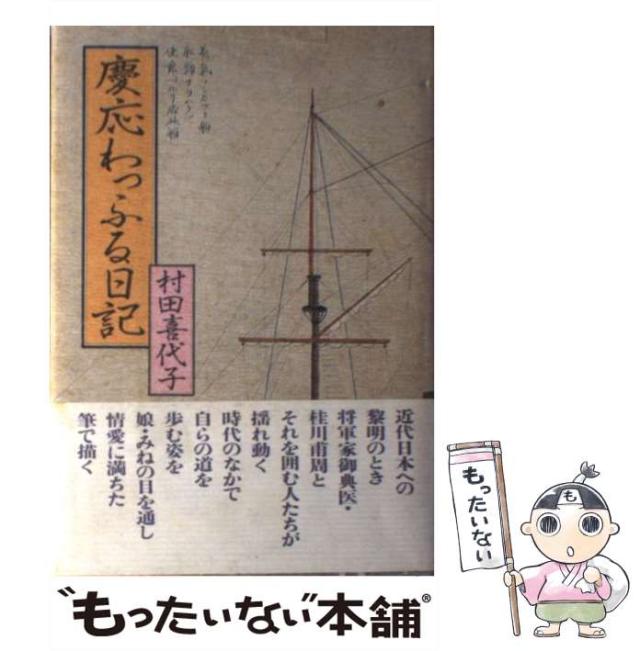 慶応わっふる日記
村田喜代子
近代日本への
黎明のとき
将軍家御典医・
桂川甫周と
それを囲む人たちが
揺れ動く
時代のなかで
自らの道を
歩む姿を
娘・みねの目を通し
情愛に満ちた
筆で描く
“もったいない”本舗®
もったいない
も